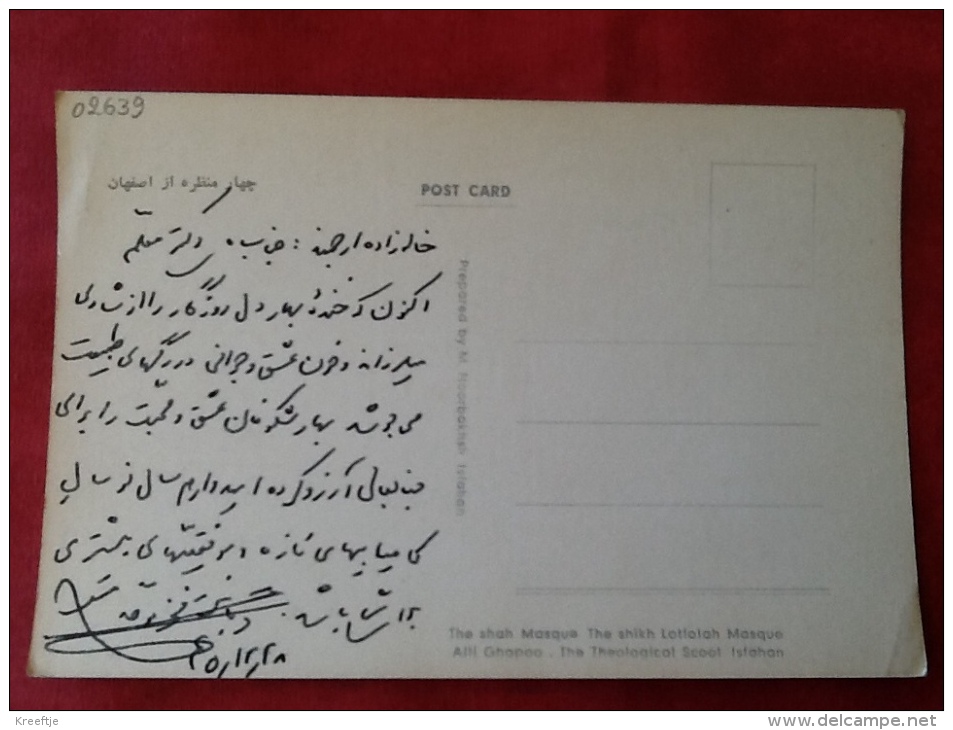 02639
چهار منظره از اصفهان
POST CARD
خاله‌زاده ارجمند : جناب دکتر معلم
اکنون که خندهٔ بهار دل روزگار را از شادی
میلرزاند و خون عشق و جوانی در رگهای طبیعت
می‌جوشد بهار شکوفان عشق و محبت را برای
جنابعالی آرزو کرده امیدوارم سال نو سال
کامیابیهای تازه و موفقیتهای بیشتری
برای شما باشد.
۴۵/۱۲/۲۸
Prepared by M. Noorbakhsh Isfahan
The shah Masque The shikh Lotfolah Masque
Alli Ghapoo . The Theological Scool Isfahan
Kreeftje
www.delcampe.net